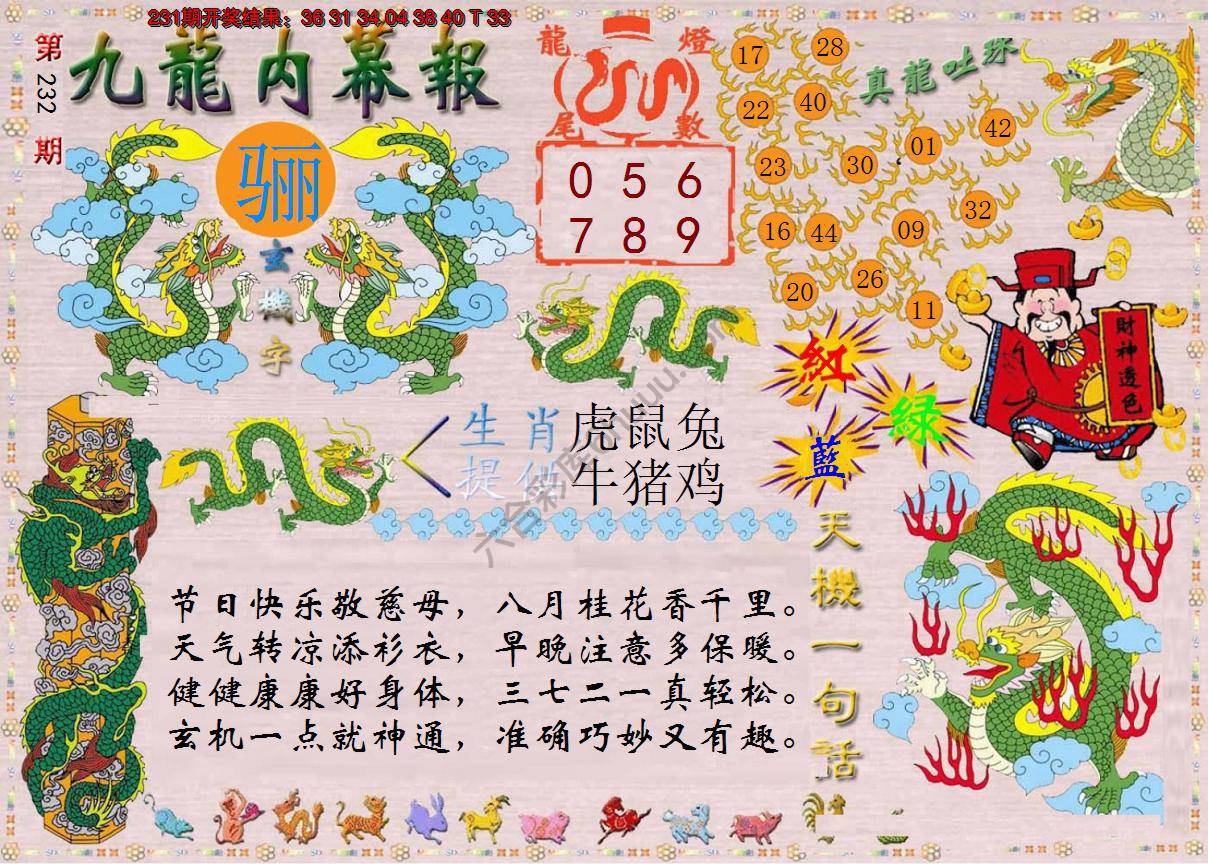 231期开奖结果：36 31 34.04 38 40 T 33
第232期
九龍内幕報
龍燈尾數
0 5 6
7 8 9
真龍吐珠
17 28
22 40
23 30 01 42
16 44 09 32
20 26 11
骊
玄機字
紅
綠
藍
財神透色
生肖 虎鼠兔
提供 牛猪鸡
天機一句話
节日快乐敬慈母，八月桂花香千里。
天气转凉添衫衣，早晚注意多保暖。
健健康康好身体，三七二一真轻松。
玄机一点就神通，准确巧妙又有趣。